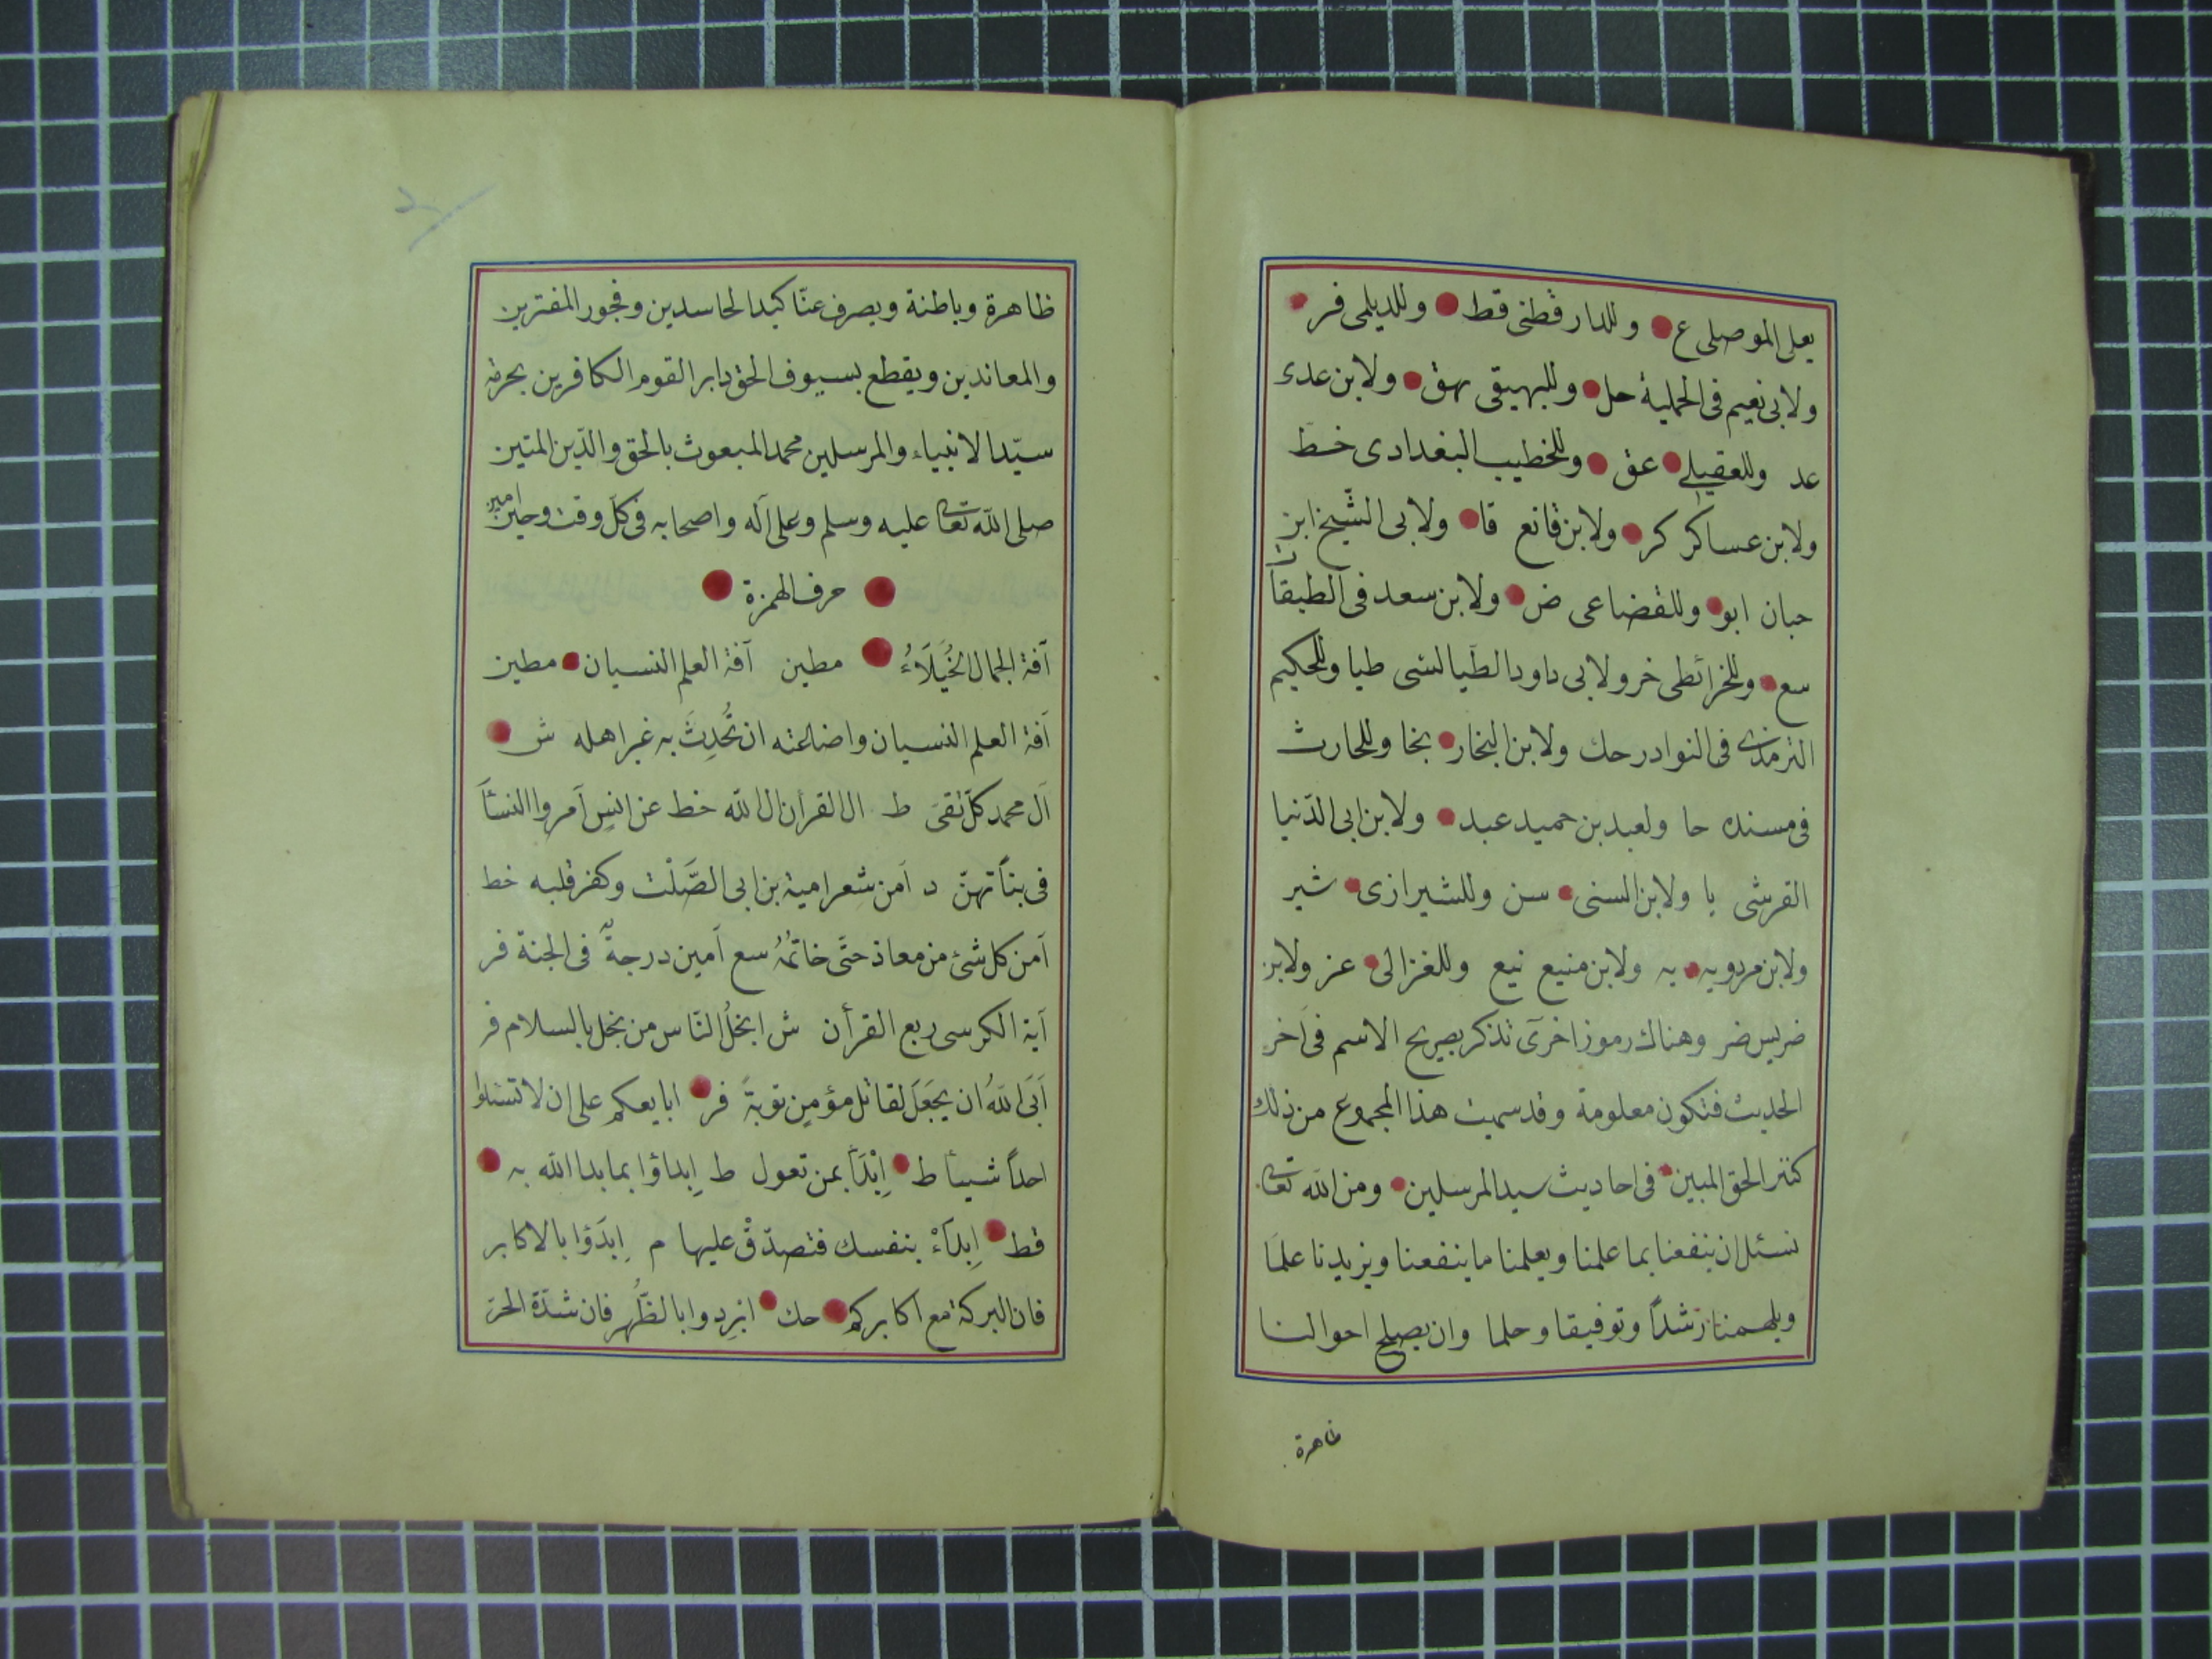 يعلى الموصلى ع وللدارقطنى قط وللديلمى فر
ولابى نعيم فى الحلية حل وللبيهقى هق ولابن عدى
عد وللعقيلى عق وللخطيب البغدادى خط
ولابن عساكر كر ولابن قانع قا ولابى الشيخ ابن
حبان ابو وللقضاعى ض ولابن سعد فى الطبقات
سع وللخرائطى خر ولابى داود الطيالسى طيا وللحكيم
الترمذى فى النوادر حك ولابن النجار نجا وللحارث
فى مسنده حا ولعبد بن حميد عبد ولابن ابى الدّنيا
القرشى يا ولابن السنى سن وللشيرازى شير
ولابن مردويه يه ولابن منيع نيع وللغزالى عز ولابن
ضريس ضر وهناك رموز اخرى تذكر بصريح الاسم فى آخر
الحديث فتكون معلومة وقد سميت هذا المجموع من ذلك
كنز الحق المبين فى احاديث سيد المرسلين ومن الله تعالى
نسئل ان ينفعنا بما علمنا ويعلمنا ما ينفعنا ويزيدنا علما
ويلهمنا رشداً وتوفيقا وحلما وان يصلح احوالنا
ظاهرة
ظاهرة وباطنة ويصرف عنّا كيد الحاسدين وفجور المفترين
والمعاندين ويقطع بسيوف الحق دابر القوم الكافرين بحرمة
سيّد الانبياء والمرسلين محمد المبعوث بالحق والدّين المتين
صلى الله تعالى عليه وسلم وعلى آله واصحابه فى كلّ وقت وحين امين
حرف الهمزة
آفة الجمال الخُيَلَاءُ مطين آفة العلم النسيان مطين
آفة العلم النسيان واضاعته ان تُحَدِثَ به غير اهله ش
آل محمد كلّ تقى ط ال القرآن ال الله خط عن انس آمروا النسأ
فى بناتهنّ د آمن شعر امية بن ابى الصَّلْت وكفر قلبه خط
آمن كل شئ من معاذ حتّى خاتمُهُ سع آمين درجةٌ فى الجنة فر
آية الكرسى ربع القرأن ش ابخلُ النّاس من بخل بالسلام فر
اَبَى اللهُ ان يَجعَلَ لقاتل مؤمِنٍ توبةً فر ابايعكم على ان لا تسئلوا
احداً شيئاً ط اِبْدَأْ بمن تعول ط اِبداؤا بما بدا الله به
قط اِبدَأْ بنفسك فتصدّقْ عليها م اِبدَؤا بالاكابر
فان البركة مع اكابركم حك ابرِدوا بالظُّهر فان شدّة الحرّ